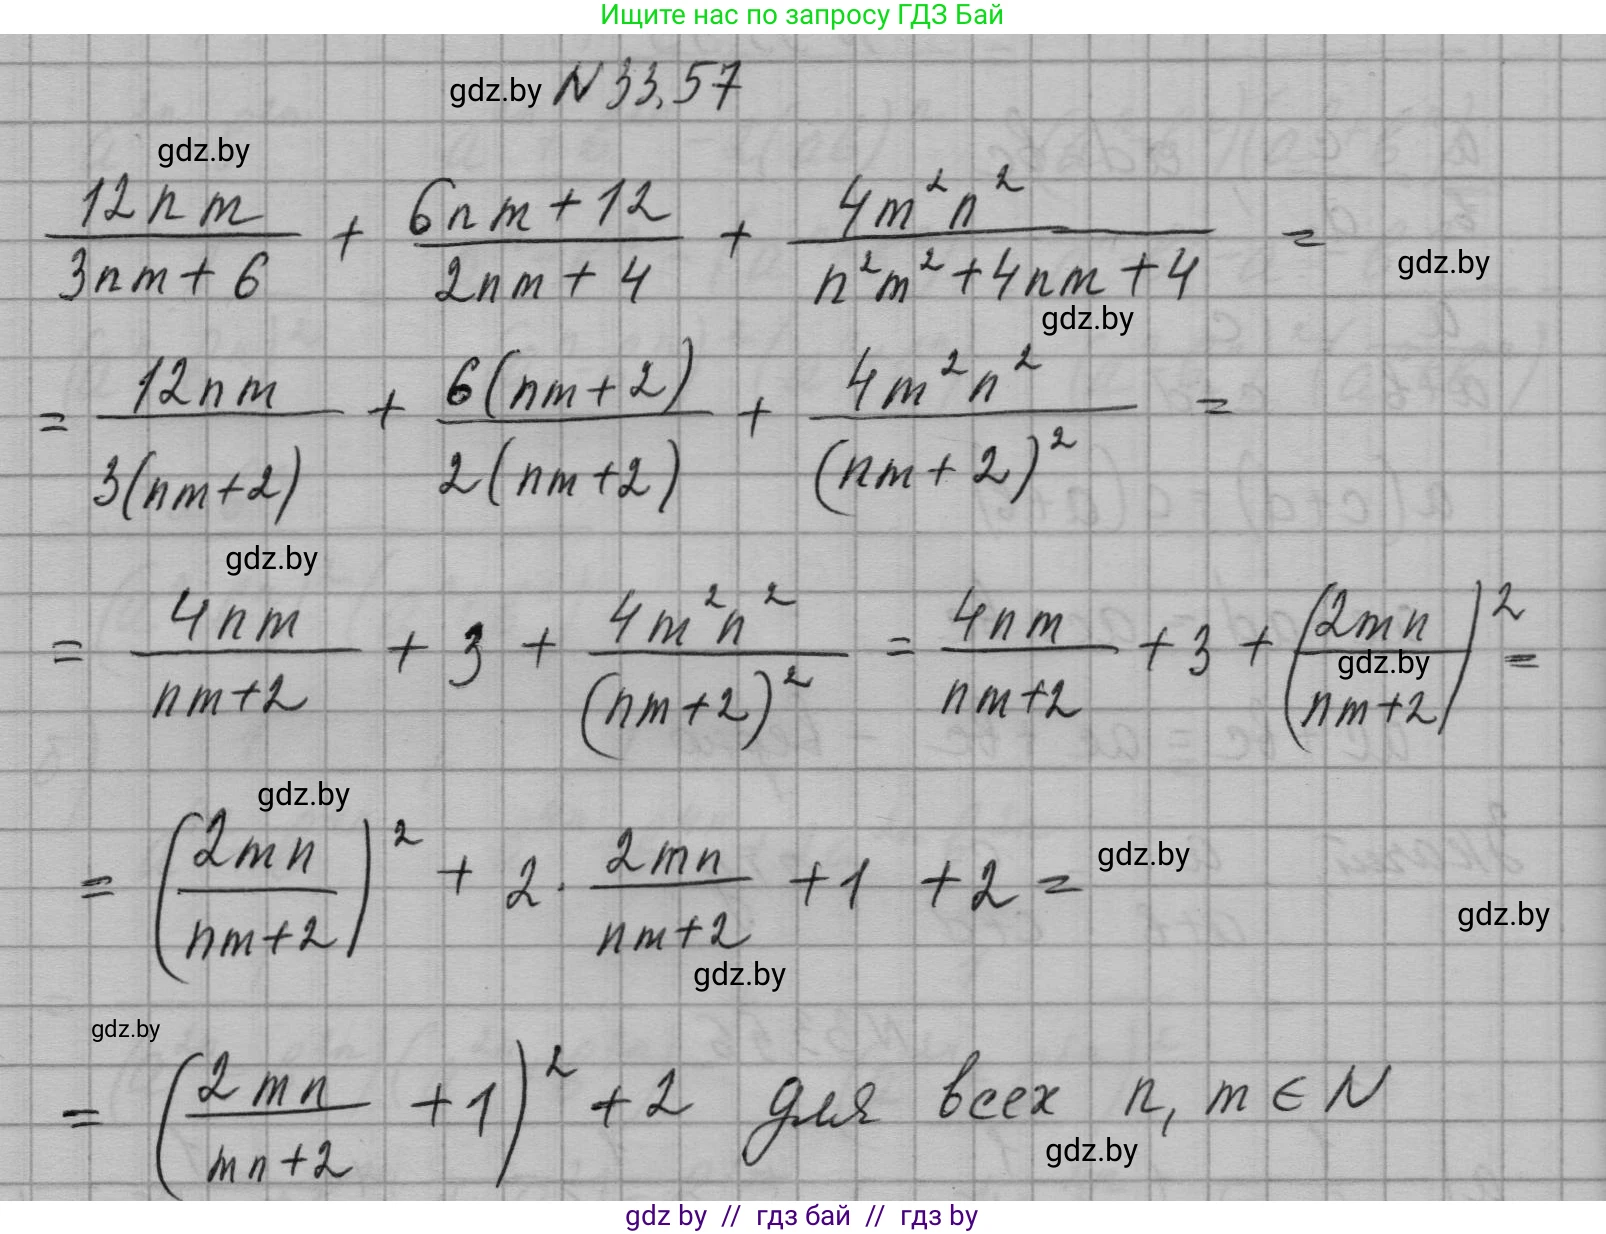 Ищите нас по запросу ГДЗ Бай
gdz.by N 33.57
gdz.by
12nm/(3nm+6) + (6nm+12)/(2nm+4) + 4m²n²/(n²m²+4nm+4) =
gdz.by
gdz.by
= 12nm/(3(nm+2)) + 6(nm+2)/(2(nm+2)) + 4m²n²/(nm+2)² =
gdz.by
= 4nm/(nm+2) + 3 + 4m²n²/(nm+2)² = 4nm/(nm+2) + 3 + (2mn/(nm+2))² =
gdz.by
gdz.by
= (2mn/(nm+2))² + 2 · 2mn/(nm+2) + 1 + 2 =
gdz.by
gdz.by
gdz.by
gdz.by
= (2mn/(mn+2) + 1)² + 2 для всех n, m ∈ N
gdz.by
gdz by // гдз бай // гдз by